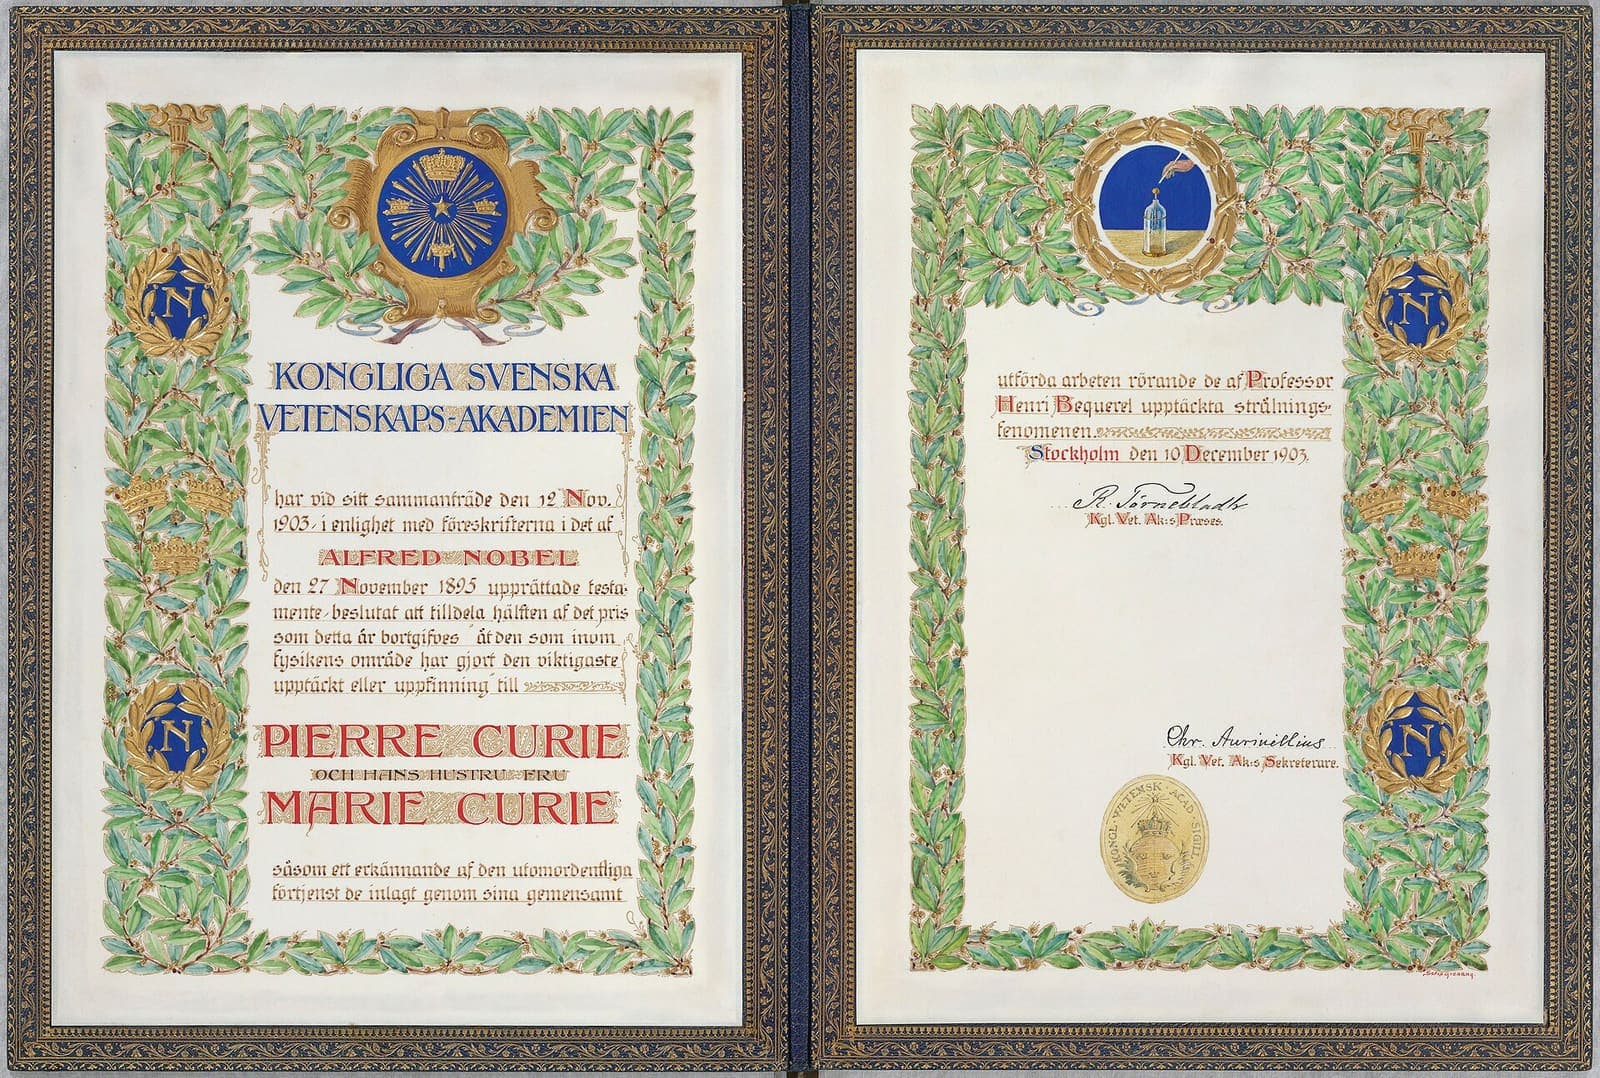 KONGLIGA SVENSKA
VETENSKAPS-AKADEMIEN
har vid sitt sammanträde den 12 Nov.
1903, i enlighet med föreskrifterna i det af
ALFRED NOBEL
den 27 November 1895 upprättade testa-
mente, beslutat att tilldela hälften af det pris
som detta år bortgifves "åt den som inom
fysikens område har gjort den viktigaste
upptäckt eller uppfinning" till
PIERRE CURIE
OCH HANS HUSTRU FRU
MARIE CURIE
såsom ett erkännande af den utomordentliga
förtjenst de inlagt genom sina gemensamt
N
N
utförda arbeten rörande de af Professor
Henri Bequerel upptäckta strålnings-
fenomenen
Stockholm den 10 December 1903.
R. Törnebladh
Kgl. Vet. Ak:s Præses.
Chr. Aurivillius
Kgl. Vet. Ak:s Sekreterare.
KONGL. VETENSK. ACAD. SIGILL
N
N